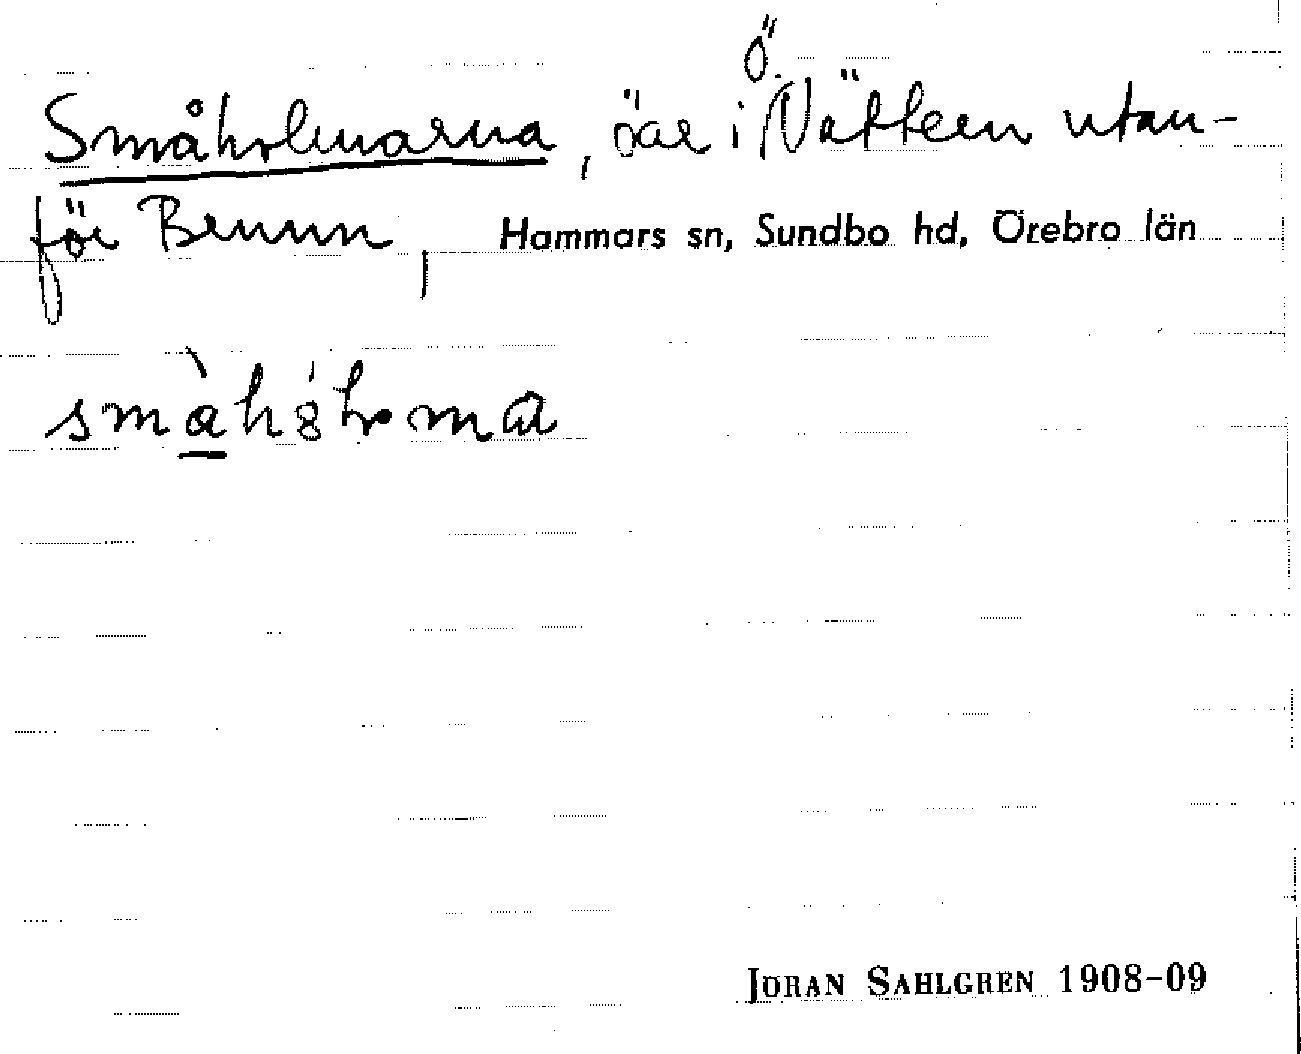 Ö.
Småholmarna, öar i Vättern utan-
för Brunn, Hammars sn, Sundbo hd, Örebro län
JÖRAN SAHLGREN 1908–09